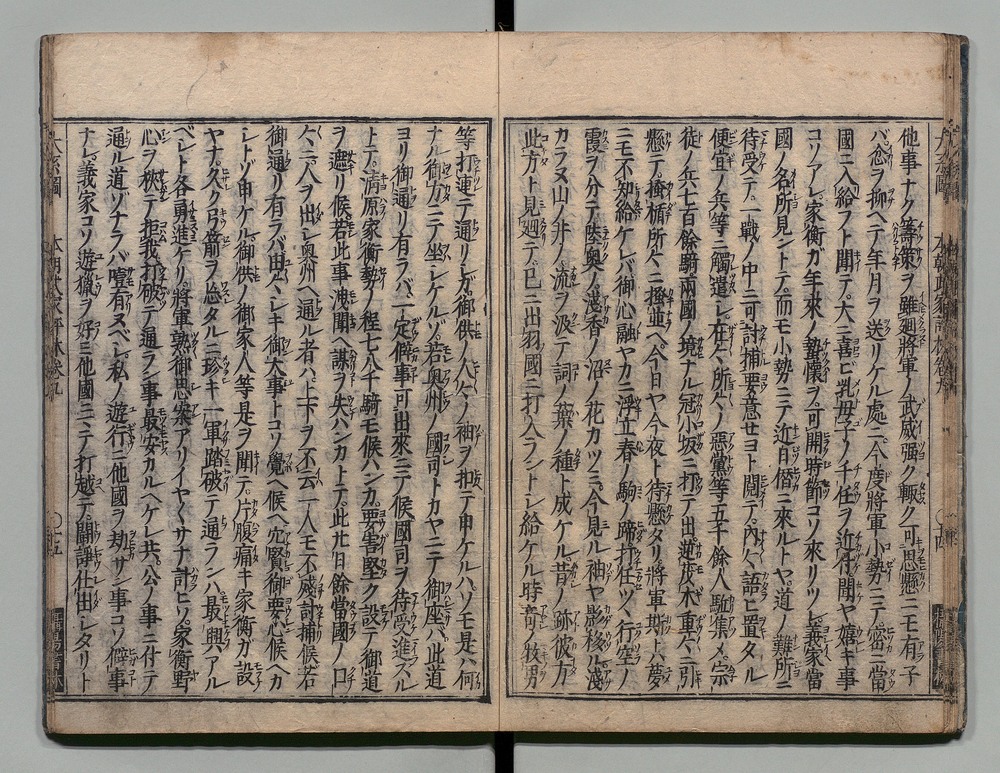 他事ナク籌策ヲ雖廻將軍ノ武威强ク輙ク可思懸ニモ有子
バ忿ヲ抑ヘテ年月ヲ送リケル處ニ今度將軍小勢ニテ密ニ當
國ニ入給フト聞テ大ニ喜ビ乳母子ノ千任ヲ近付聞ヤ嬉キ事
コソアレ家衡ガ年來ノ蟄懷ヲ可開時節コソ來リツレ義家當
國ノ名所見ントテ而モ小勢ニテ近日僭ニ來ルトヤ道ノ難所ニ
待受テ一戰ノ中ニ可討捕要意セヨト聞テ内〻語ヒ置タル
便宜ノ兵等ニ觸遣シ在〻所〻ノ惡黨等五千餘人駈集メ宗
徒ノ兵七百餘騎兩國ノ境ナル冠小坂ニ打テ出逆茂木重〻ニ引
懸テ掻楯所〻ニ搔並ヘ今日ヤ今夜ト待懸タリ將軍期トハ夢
ニモ不知給ケレバ御心融ヤカニ浮立春ノ駒ノ蹄打任ツヽ行空ノ
霞ヲ分テ陸奥ノ淺香ノ沼ノ花カツミ今見ル袖ヤ影移ル淺
カラヌ山ノ井ノ流ヲ汲テ詞ノ葉ノ種ト成ケル昔ノ跡彼方
此方ト見廻テ已ニ出羽國ニ打入ラントシ給ケル時奇ノ牧男
等打連テ通リシガ御供ノ人〻ノ袖ヲ扣テ申ケルハソモ是ハ何
ナル御方ニテ坐シケルゾ若奥州ノ國司トカヤニテ御座バ此道
ヨリ御通リ有ラバ一定僻事可出來ニテ候國司ヲ待受進ズル
トテ淸原家衡勢ノ程七八千騎モ候ハンカ要害堅ク設テ御道
ヲ遮リ候若此事洩聞ヘ謀ヲ失ハンカトテ此廿日餘當國ノ口
〻ニ人ヲ出シ奥州ヘ通ル者ハ上下ヲ不云一人モ不殘討捕候若
御通リ有ラバ由〻シキ御大事トコソ覺ヘ候ヘ穴賢御要心候ヘカ
シトゾ申ケル御供ノ御家人等是ヲ聞テ片腹痛キ家衡ガ設
ヤナ久ク弓箭ヲ忘タルニ珍キ一軍踏破テ通ランハ最興アル
ベシト各勇進ケリ將軍熟御思案アリイヤ〱サナ計ヒソ家衡野
心ヲ挾テ拒我打破テ通ラン事最安カルヘケレ共公ノ事ニ付テ
通ル道ゾナラバ噫有ヌベシ私ノ遊行ニ他國ヲ劫サン事コソ僻事
ナレ義家コソ遊獵ヲ好ミ他國ニテ打越テ鬪諍仕出シタリト
本朝武家評林卷九
〇十五